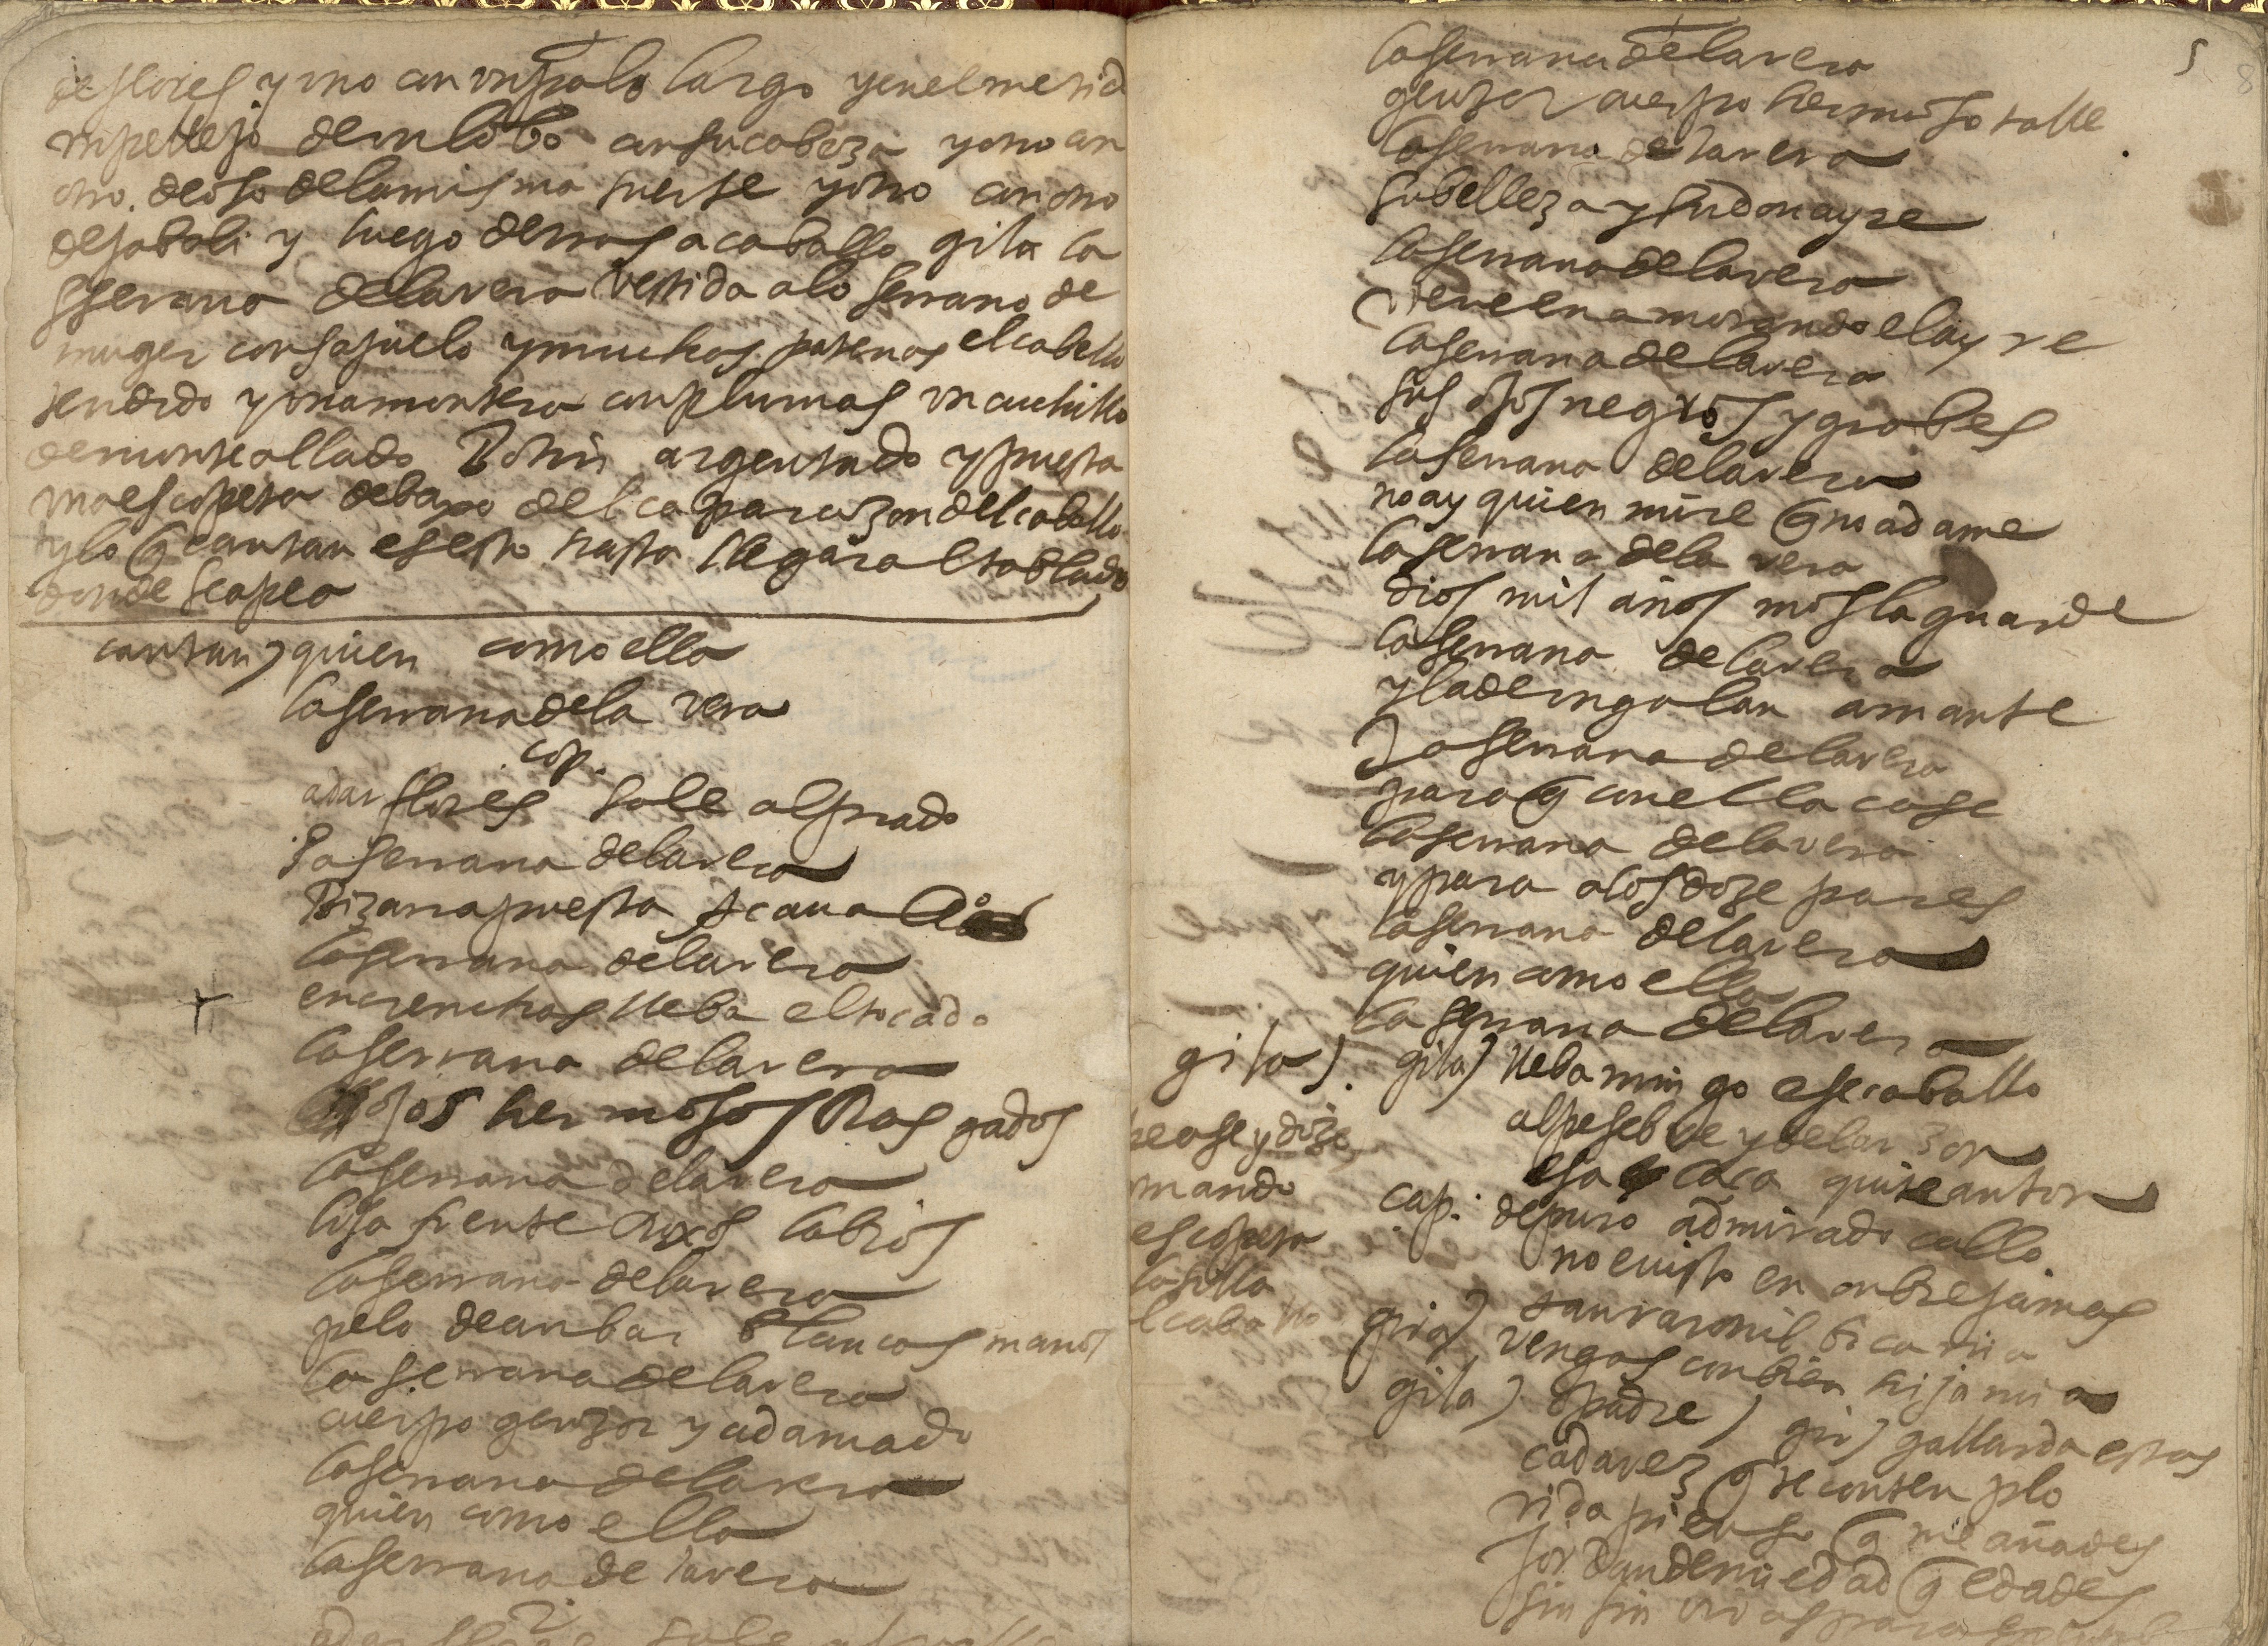 de flores y uno con un palo largo y en el metid
un pellejo de un lobo con su cabeza y otro con
otro. de oso de la misma suerte y otro con otro
de jabali y luego detras a caballo gila la
sserrana de la vera vestida a lo serrano de
muger con sajuelo y muchas patenas el cabello
tendido y una montera con plumas un cuchillo
de monte al lado Botin argentado y puesta
una escopeta debajo del caparazon del caballo
y lo q cantan es esto hasta llegar al tablado
donde se apea
cantan) quien como ella
la serrana de la vera
cop.
a dar flores sale al prado
la serrana de la vera
Bizarra puesta a cauallo
la serrana de la vera
en crenchas lleba el tocado
la serrana de la vera
ojos hermosos Rasgados
la serrana de la vera
lisa frente Roxos labios
la serrana de la vera
pelo de anbar blancas manos
la serrana de la vera
cuerpo genzor y adamado
la serrana de la vera
quien como ella
la serrana de la vera
2
a dar flores sale al valle
5
8
la serrana de la vera
genzor cuerpo hermoso talle
la serrana de la vera
su belleza y su donayre
la serrana de la vera
viene enamorando el ayre
la serrana de la vera
sus ojos negros y grabes
la serrana de la vera
no ay quien mire q no adame
la serrana de la vera
dios mil años mos la guarde
la serrana de la vera
y la de un galan amante
la serrana de la vera
para q con ella case
la serrana de la vera
y para a los doze pares
la serrana de la vera
quien como ella
la serrana de la vera
gila).
pease y dize
mando
escopeta
la silla
l caballo
gila) lleba mingo ese caballo
al pesebre y del arzon
esa caca quite anton
cap. de puro admirado callo
no e uisto en onbre jamas
tan varonil bicarria
gir) vengas con bien hija mia
gila) o padre) gir) gallarda estas
cada vez q te contenplo
vida pienso q me añades
jordan de mi edad q edades